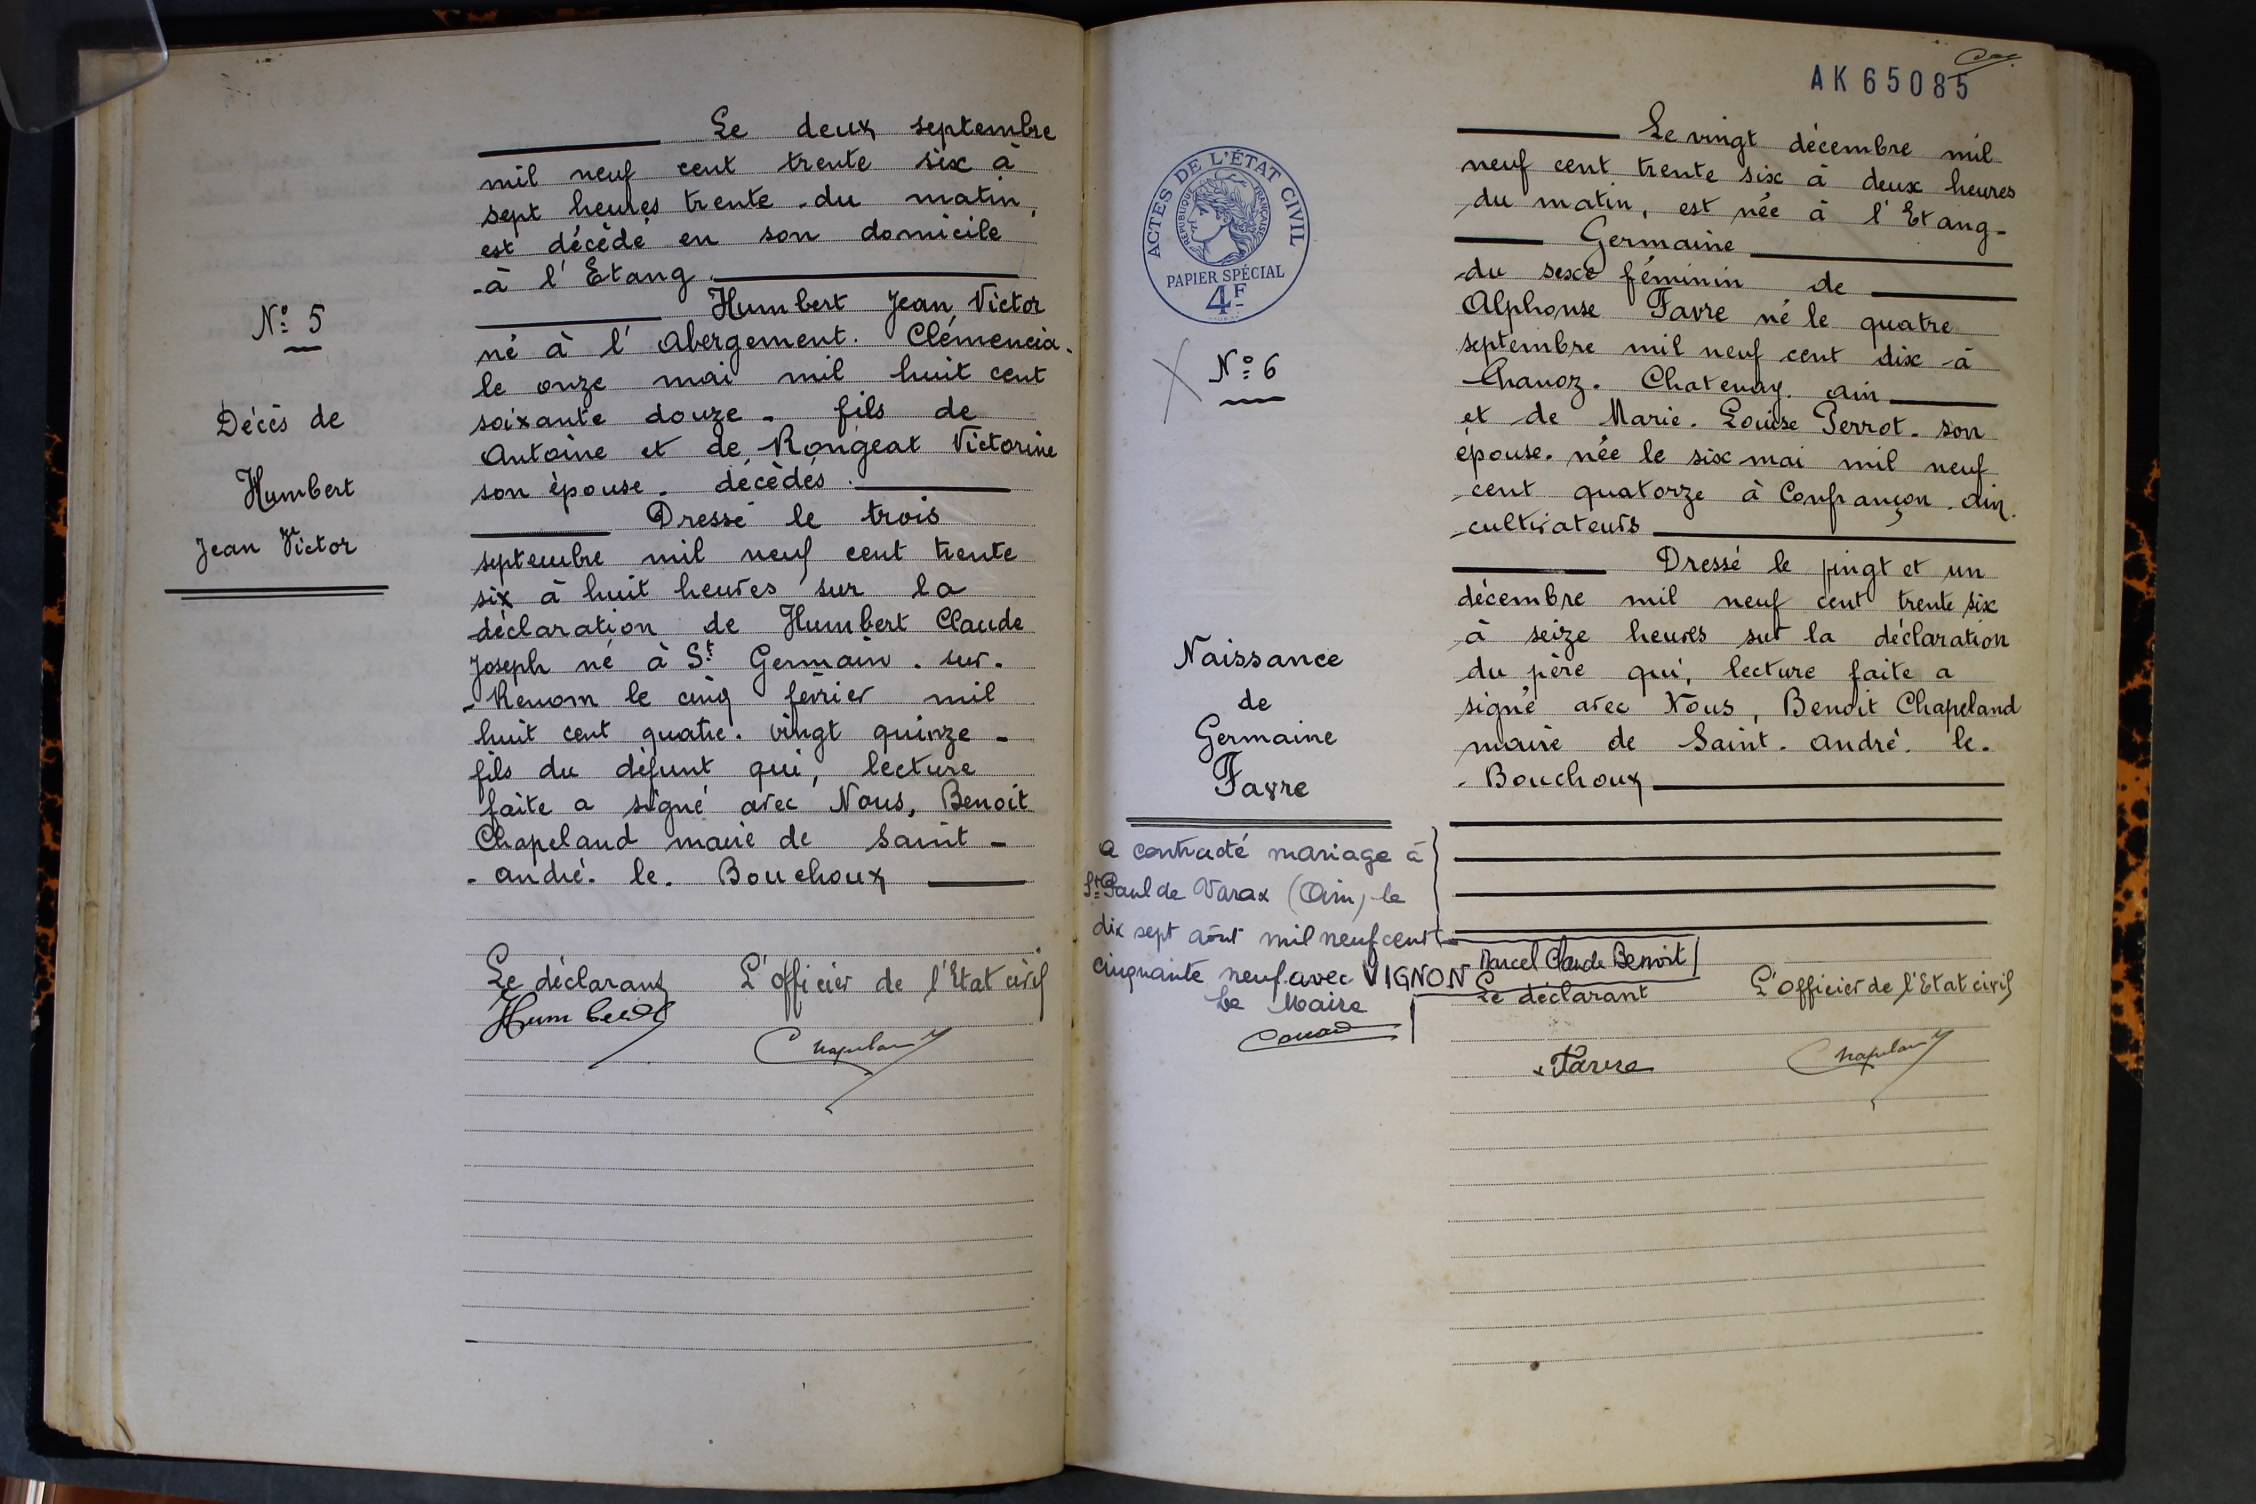 N° 5
Décès de
Humbert
Jean Victor
Le deux septembre
mil neuf cent trente six à
sept heures trente du matin,
est décédé en son domicile
à l'Etang.
Humbert Jean, Victor
né à l'Abergement. Clémencia.
le onze mai mil huit cent
soixante douze - fils de
Antoine et de Rongeat Victorine
son épouse. décédés.
Dressé le trois
septembre mil neuf cent trente
six à huit heures sur la
déclaration de Humbert Claude
Joseph né à St Germain. sur.
-Renom le cinq février mil
huit cent quatre. vingt quinze -
fils du défunt qui, lecture
faite a signé avec Nous, Benoit
Chapeland maire de Saint -
- André. le. Bouchoux
Le déclarant L'officier de l'Etat civil
Humbert Chapeland
AK 65085
ACTES DE L'ÉTAT CIVIL
RÉPUBLIQUE FRANÇAISE
PAPIER SPÉCIAL
4F
N° 6
Naissance
de
Germaine
Favre
a contracté mariage à
St Paul de Varax (Ain) le
dix sept août mil neuf cent
cinquante neuf avec VIGNON Marcel Claude Benoit
Le Maire
Le vingt décembre mil
neuf cent trente six à deux heures
du matin, est née à l'Etang-
Germaine
du sexe féminin de
Alphonse Favre né le quatre
septembre mil neuf cent dix à
Chanoz. Chatenay. Ain
et de Marie. Louise Perrot. son
épouse. née le six mai mil neuf
cent quatorze à Confrançon. Ain.
cultivateurs
Dressé le vingt et un
décembre mil neuf cent trente six
à seize heures sur la déclaration
du père qui, lecture faite a
signé avec Nous, Benoit Chapeland
maire de Saint. André. le.
- Bouchoux
Le déclarant L'officier de l'Etat civil
Favre Chapeland